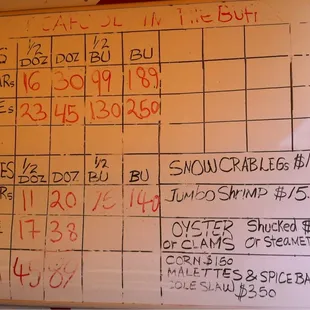 IN THE BUFF
1/2 DOZ DOZ 1/2 BU BU
16 30 99 189
23 45 130 250
1/2 DOZ DOZ 1/2 BU BU
11 20 75 140
17 38
SNOW CRAB LEGS $1
JUMBO SHRIMP $15.
OYSTER Shucked $
or CLAMS or STEAME
CORN $1.50
MALETTES & SPICE BA
COLE SLAW $3.50